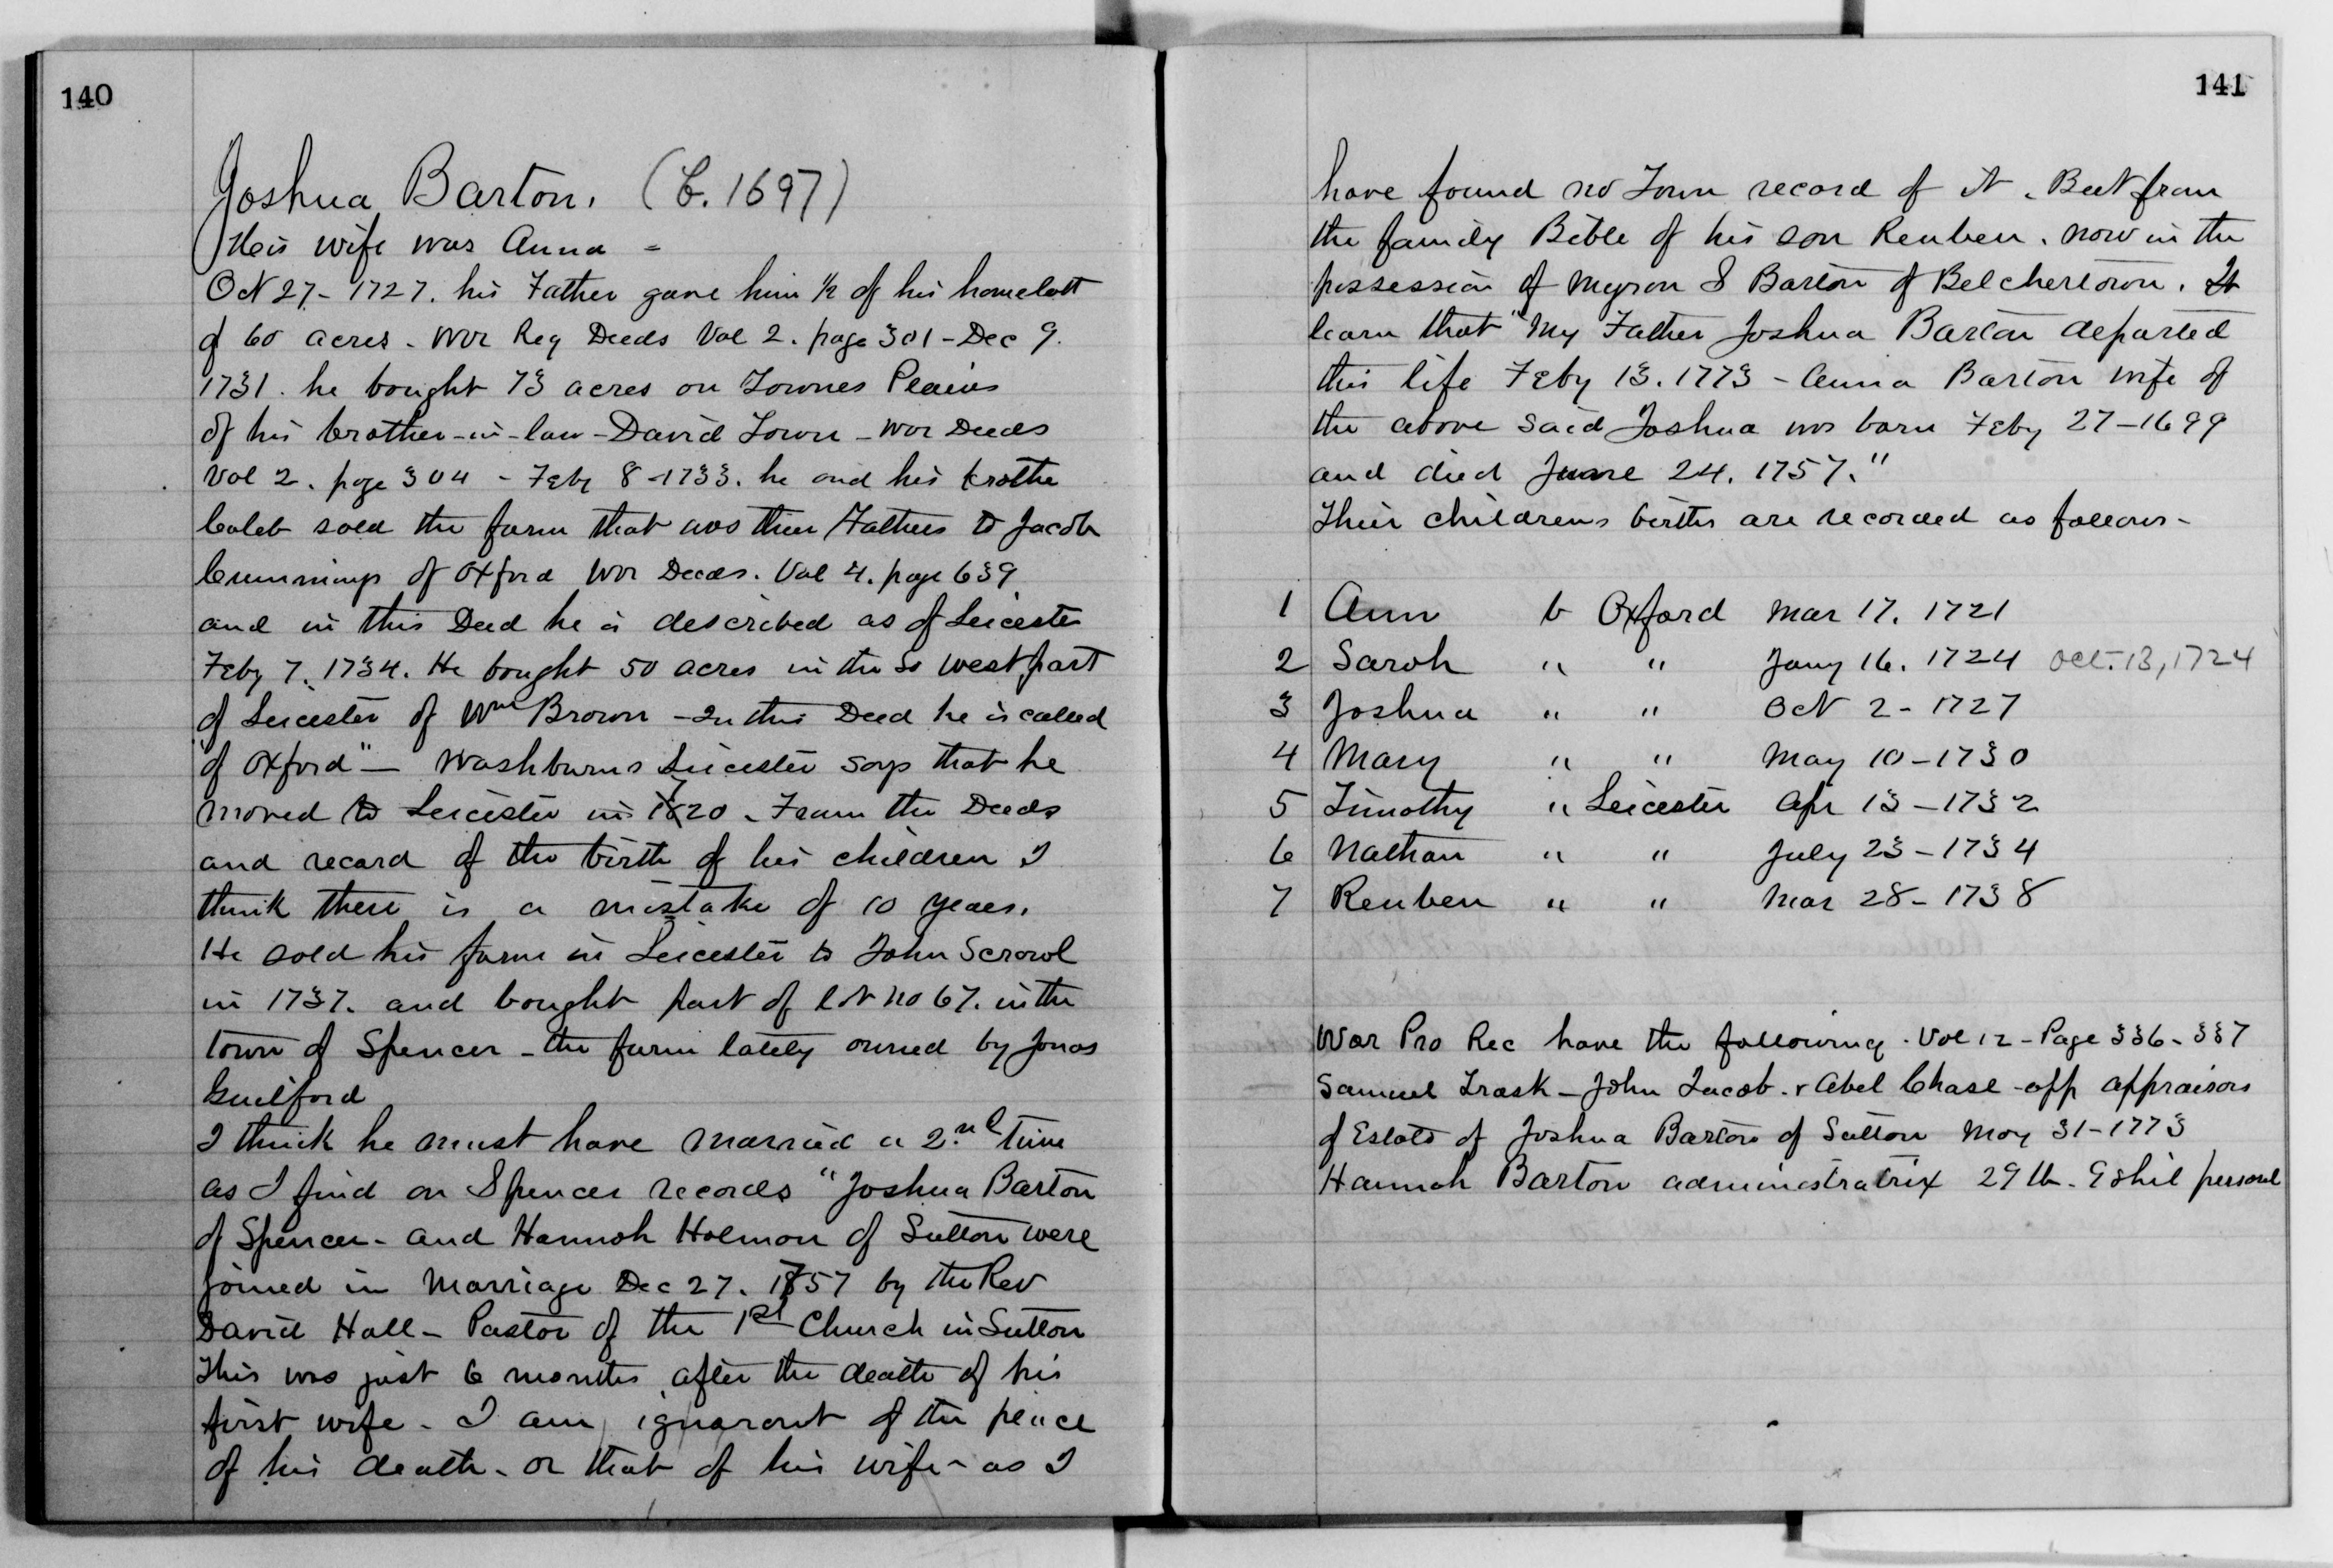 140
Joshua Barton. (b. 1697)
His wife was Anna -
Oct 27 - 1727. his Father gave him ½ of his homelott
of 60 acres - Wor Reg Deeds Vol 2. page 301 - Dec 9.
1731. he bought 73 acres on Townes Plains
of his brother-in-law - David Town - Wor Deeds
Vol 2. page 304 - Feby 8 - 1733. he and his brothe
Caleb sold the farm that was their Fathers to Jacob
Cummings of Oxford Wor Deeds. Vol 4. page 639
and in this Deed he is described as of Leicester
Feby 7. 1734. He bought 50 acres in the So west part
of Leicester of Wm Brown - In this Deed he is called
"of Oxford" - Washburns Leicester says that he
moved to Leicester in 1720 - From the Deeds
and record of the birth of his children I
think there is a mistake of 10 years.
He sold his farm in Leicester to John Scrowl
in 1737. and bought part of lot no 67. in the
town of Spencer - the farm lately owned by Jonas
Guilford
I think he must have married a 2nd time
as I find on Spencer records "Joshua Barton
of Spencer - and Hannah Holman of Sutton were
joined in marriage Dec 27. 1757 by the Rev
David Hall - Pastor of the 1st Church in Sutton
This was just 6 months after the death of his
first wife - I am ignorant of the place
of his death - or that of his wife - as I
141
have found no Town record of it. But from
the family Bible of his son Reuben. now in the
possession of Myron S Barton of Belchertown. It
learn that "My Father Joshua Barton departed
this life Feby 13. 1773 - Anna Barton wife of
the above said Joshua was born Feby 27 - 1699
and died June 24. 1757."
Their childrens births are recorded as follows -
1 Ann b Oxford Mar 17. 1721
2 Sarah " " Jany 16. 1724 Oct. 13, 1724
3 Joshua " " Oct 2 - 1727
4 Mary " " May 10 - 1730
5 Timothy " Leicester Apr 13 - 1732
6 Nathan " " July 23 - 1734
7 Reuben " " Mar 28 - 1738
Wor Pro Rec have the following. Vol 12 - Page 336 - 337
Samuel Trask - John Jacob. & Abel Chase - app appraisors
of Estate of Joshua Barton of Sutton May 31 - 1773
Hannah Barton administratrix 29 lb. 9 shil personal